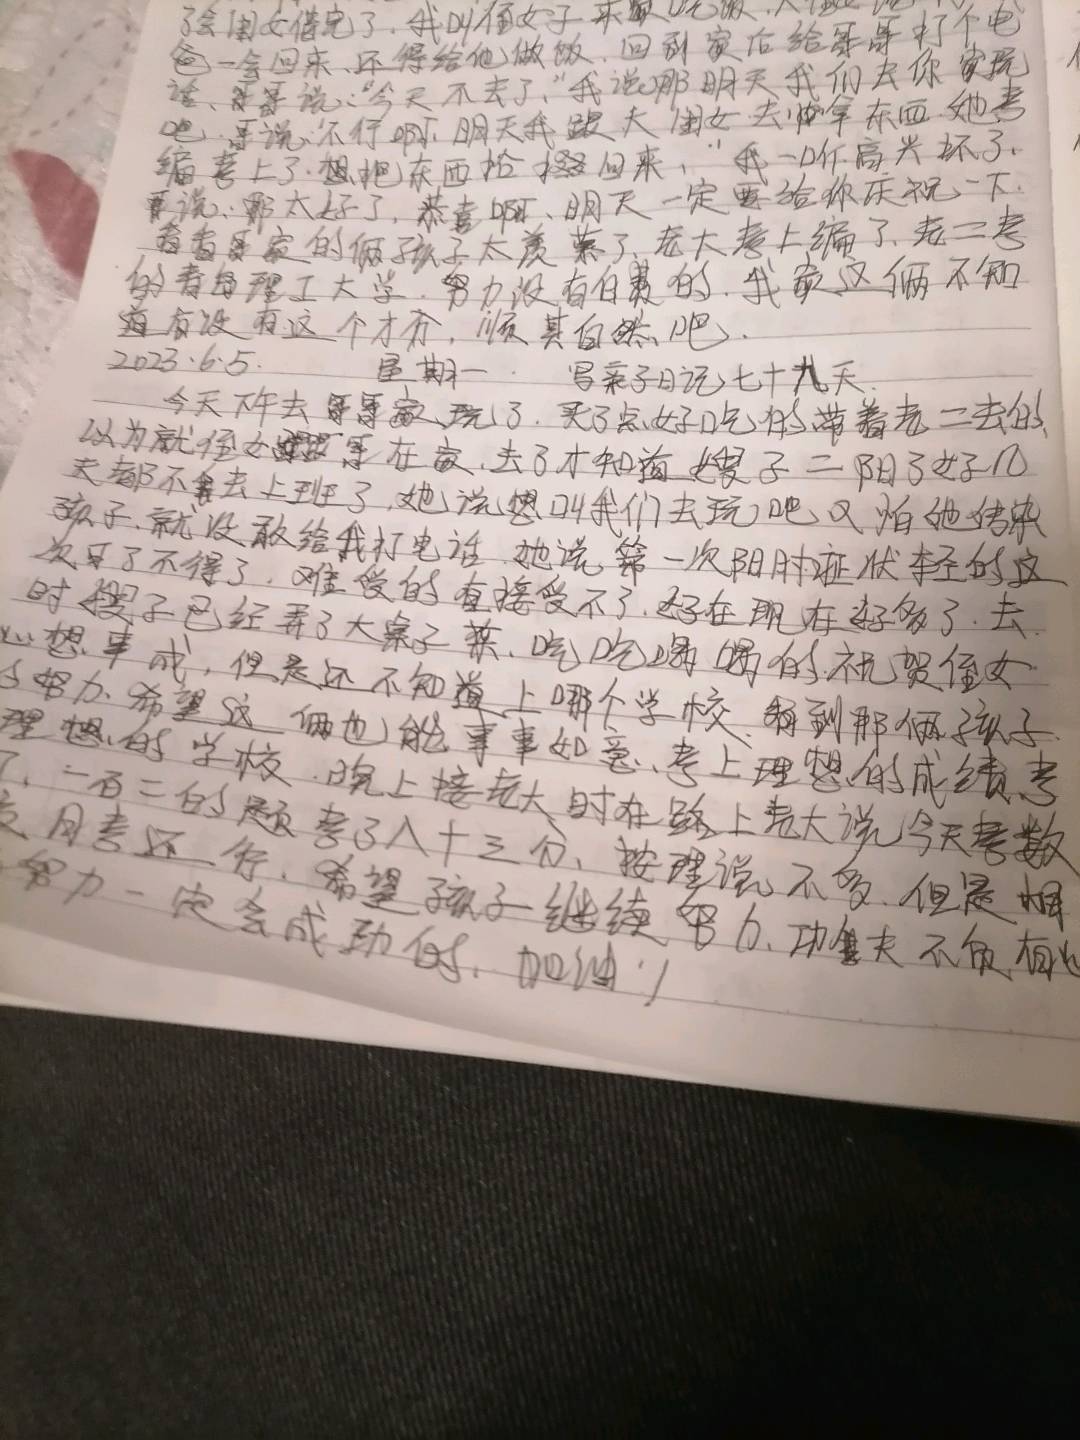 了会闺女借完了，我叫侄女子来家吃饭，大侄女说
爸一会回来、还得给他做饭，回到家后给哥哥打个电
话、哥哥说:“今天不去了,”我说那明天我们去你家玩
吧，哥说:不行啊、明天我跟大闺女去拿东西、她考
编考上了、想把东西拾掇回来，”我一听高兴坏了、
哥说、那太好了，恭喜啊、明天一定要给你庆祝一下.
看看哥家的俩孩子太羡慕了、老大考上编了、老二考
的青岛理工大学、努力没有白费的、我家这俩不知
道有没有这个才夯，顺其自然吧.
2023.6.5. 星期一. 写亲子日记七十九天.
今天下午去哥哥家玩了.买了点好吃的带着老二去的,
以为就侄女跟哥在家、去了才知道嫂子二阳了好几
天都不舍去上班了、她说想叫我们去玩吧又怕她传染
孩子、就没敢给我打电话、她说第一次阳时症状轻的这
次牙了不得了、难受的直接受不了、好在现在好多了、去
时嫂子已经弄了大桌子菜、吃吃喝喝的、祝贺侄女
心想事成，但是还不知道上哪个学校、看到那俩孩子
努力、希望这俩也能事事如意、考上理想的成绩、考
理想的学校、晚上接老大时在路上老大说今天考数
了、一百二的题考了八十三分、按理说不多、但是相
月考还行、希望孩子继续努力、功夫不负有心
努力一定会成功的、加油！